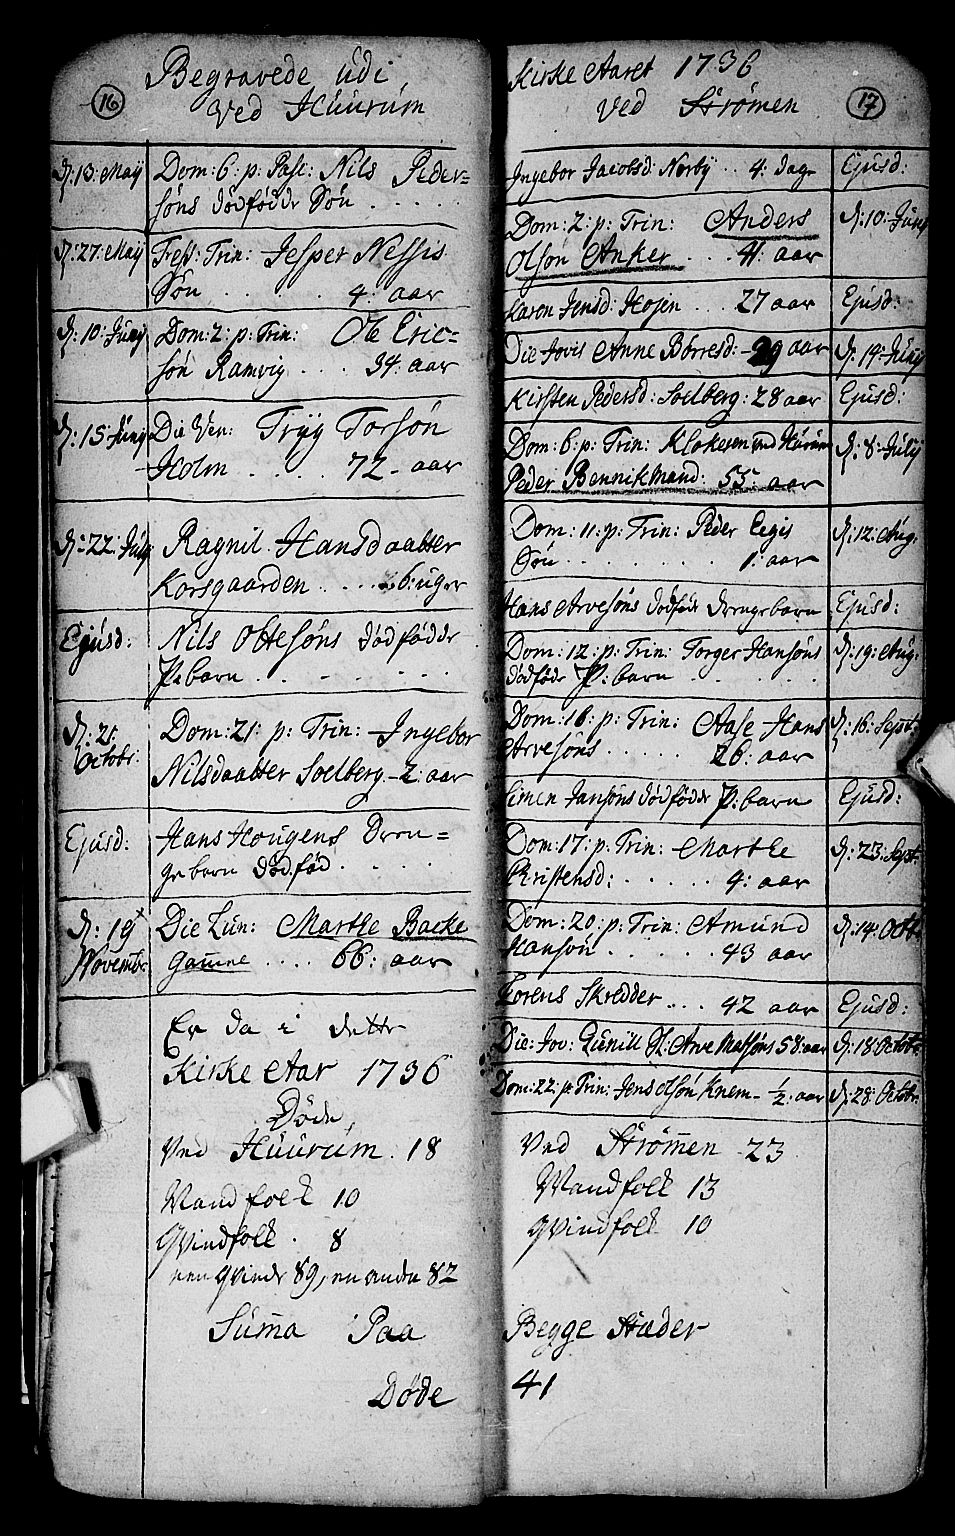 16
Begravede udi
Ved Huurum
d: 13: Maij Dom: 6: p: Pasc: Nils Peder=
søns dødfødde Søn . . . . .
d: 27: Maij Fest: Trin: Jesper Nessis
Søn . . . . . 4: aar
d: 10: Junij Dom: 2: p: Trin: Ole Eric=
søn Ramvig . . . . 34: aar
d: 15 Junij Die Ven: Tryg Torsøn
Holm . . . 72 - aar
d: 22: July Ragnil Hansdaatter
Korsgaarden . . . . 6: uger
Ejusd: Nils Ottesøns dødfødde
P: barn . . . . . . .
d: 21 Octobr: Dom: 21: p: Trin: Ingebor
Nilsdaatter Soelberg - 2: aar
Ejusd: Hans Hougens Dren=
gebarn dødfød . . . .
d: 19 Novembr Die Lun: Marthe Backe
Gamme . . . . 66: aar
Er da i dette
Kirke Aar 1736
Døde,
Ved Huurum . 18
Mandfolk 10
Qvindfolk . 8
een Qvinde 89, en anden 82
Summa Paa
Døde
17
Kirke Aaret 1736
Ved Strømen
Ingebor Jacobsd: Norby . . 4: dag Ejusd:
Dom: 2: p: Trin: Anders d: 10: Junij
Olsøn Anker . . . 41: aar
Karen Jensd: Hojen . . . 27 aar Ejusd:
Die Jovis Anne Børresd: - 29 aar d: 14: Junij
Kirsten Pedersd: Soelberg: 28 aar Ejusd:
Dom: 6: p: Trin: Klokeren ved Hurum d: 8: July
Peder Bennikmand: 55: aar
Dom: 11: p: Trin: Peder Eegis d: 12: Aug:
Søn . . . . . . . . 1: aar
Hans Arvesøns dødføde drengebarn Ejusd:
Dom: 12: p: Trin: Torger Hansøns d: 19: Aug:
dødføde P: barn . . . . . .
Dom: 16: p: Trin: Aase Hans d: 16: Sept:
Arvesøns . . . . . 26: aar
Simen Jansøns dødfødde P: barn Ejusd:
Dom: 17: p: Trin: Marthe d: 23: Sept:
Christensd: . . . . . 4: aar
Dom: 20: p: Trin: Amund d: 14: Octb:
Hansøn . . . . . . 43 aar
Lorens Skredder . . . 42 aar Ejusd:
Die: Jov: Gunill Sl: Arve Matsøns 58: aar d: 18: Octobr:
Dom: 22: p: Trin: Jens Olsøn Knem - ½: aar d: 28: Octobr:
Ved Strømmen 23
Mandfolk 13
Qvindfolk 10
Begge Stæder
41